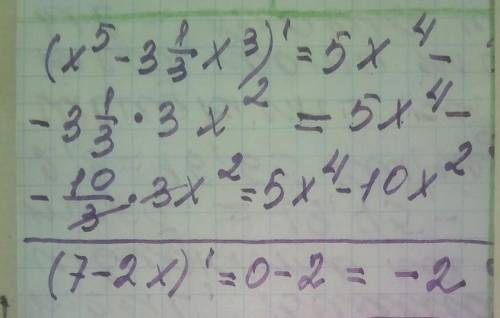 (x⁵ - 3 1/3 x³)' = 5x⁴ -
- 3 1/3 · 3x² = 5x⁴ -
- 10/3 · 3x² = 5x⁴ - 10x²
(7 - 2x)' = 0 - 2 = -2